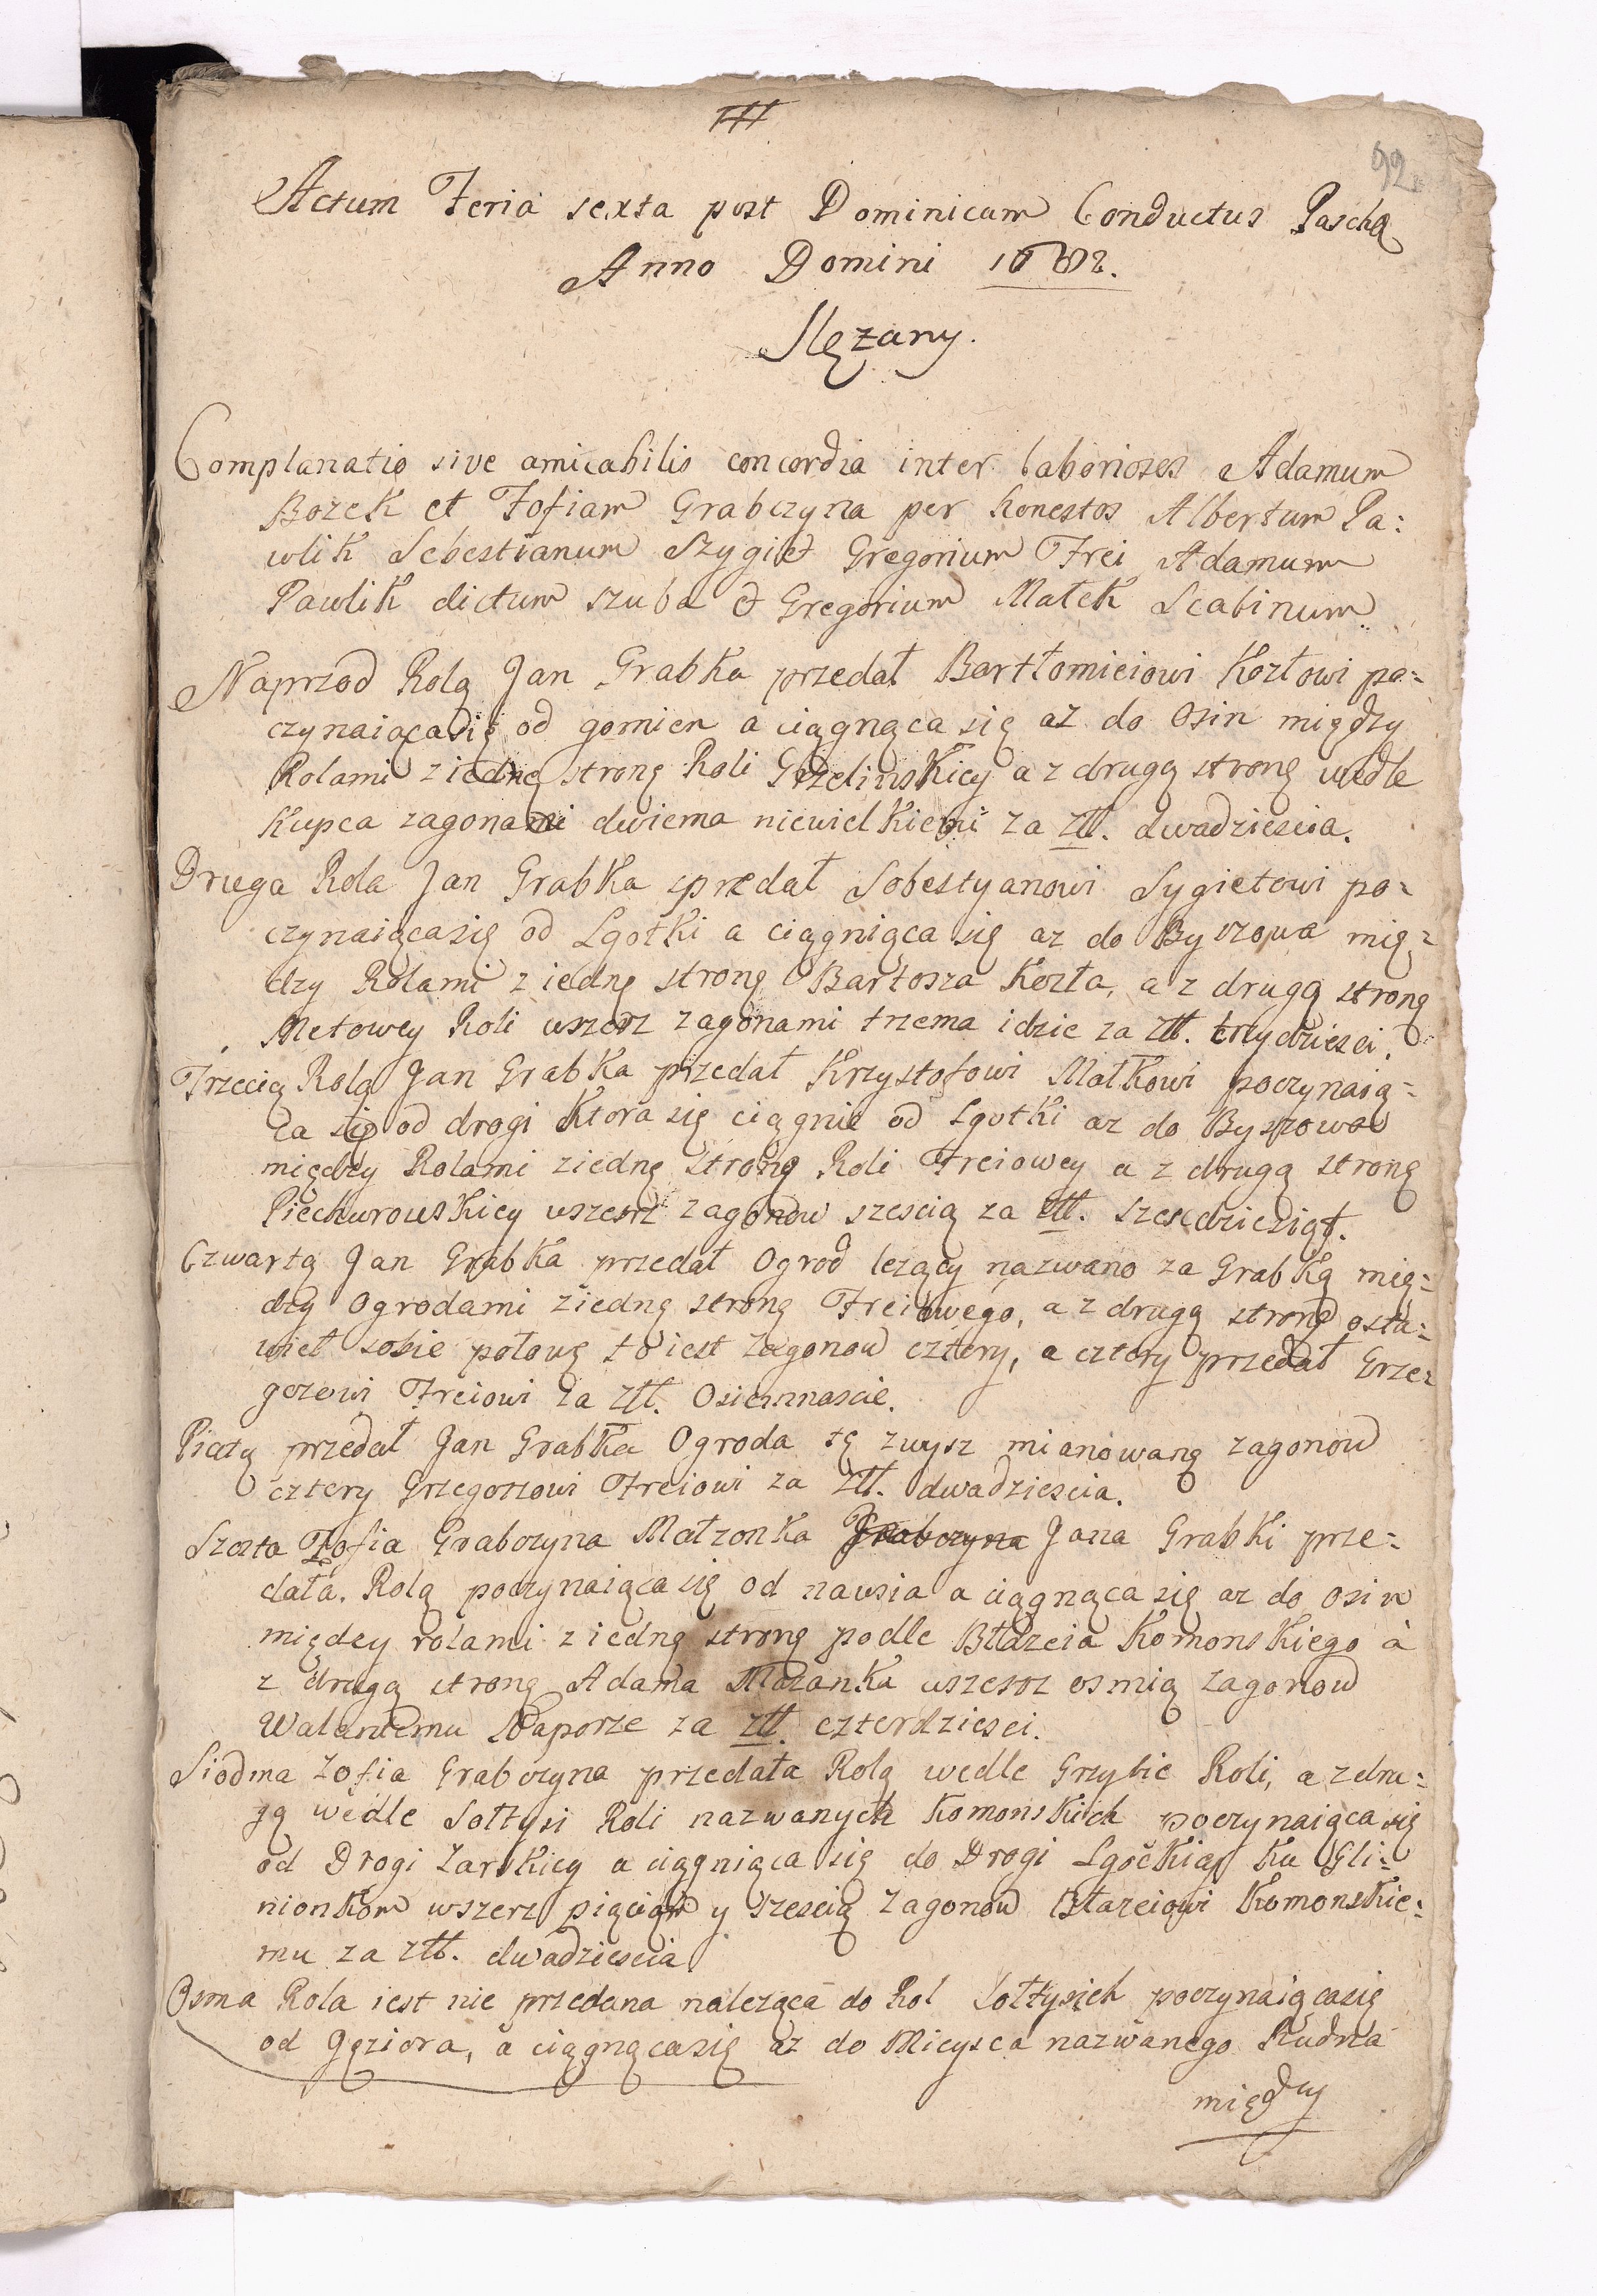 92
Actum Feria sexta post Dominicam Conductus Paschę
Anno Domini
Slęzany.
Complanatio sive amicabilis concordia inter laboriosos Adamum
Bozek et Zofiam Grabczyna per honestos Albertum Pa:
wlik Sebestianum Szygiet Gregorium Frei Adamum
Pawlik dictum szuba & Gregorium Małek Scabinum
Naprzod Rolą Jan Grabka przedał Bartłomieiowi Kozłowi po=
czynaiącasię od gomien a ciągnąca się aż do Osin między
Rolami z iednę stronę Roli Grzelinskiey a z drugą stronę wedle
Kupca zagonami dwiema niewielkiemi za złł. dwadziescia.
Druga Rola Jan Grabka sprzedał Sobestyanowi Sygietowi po=
czynaiącasię od Lgotki a ciągniąca się az do Byszowa mię=
dzy Rolami z iednę stronę Bartosza Kozła, a z drugą stronę
Metowey Roli wszerz zagonami trzema idzie za złł. trzydziesci.
Trzecią Rolą Jan Grabka przedał Krzystofowi Małkowi poczynaią=
ca się od drogi Ktora się ciągnie od Lgotki az do Byszowa
między Rolami ziednę stronę Roli Freiowey a z drugą stronę
Piechurowskiey wszerz zagonow szescią za złł. szescdziesiąt.
Czwartą Jan Grabka przedał Ogrod lezący nazwano za Grabką mię=
dzy Ogrodami ziednę stronę Freiowego, a z drugą stronę osta=
wieł sobie połowę to iest zagonow cztery, a cztery przedał Grze=
gozowi Freiowi za złł. Osiemnascie.
Piątą przedał Jan Grabka Ogroda tę zwysz mianowaną zagonow
cztery Grzegorzowi Freiowi za złł. dwadziescia.
Szosta Zofia Grabczyna Małzonka Grabczyna Jana Grabki prze=
dała. Rolą poczynaiąca się od nawsia a ciągnąca się az do osin
między rolami z iednę stronę podle Błazeia Komonskiego à
z drugą stronę Adama Mazanka wszesz osmią zagonow
Walentemu Naporze za złł. czterdziesci.
Siodma Zofia Grabczyna przedała Rolą wedle Grzybie Roli, a z dru=
gą wedle Sołtysi Roli nazwanych Komonskich poczynaiąca się
od Drogi Zarskiey a ciągniąca się do Drogi Lgockiey Ku Gli=
nionkom wszerz pięciąm y szescią zagonow Błazeiowi Komonskie=
mu za złł. dwadziescia
Osma Rola iest nie przedana nalezącą do Rol Sołtysich poczynaiącasię
od Gęziora, a ciągnącasię az do Mieysca nazwanego Rudna
między